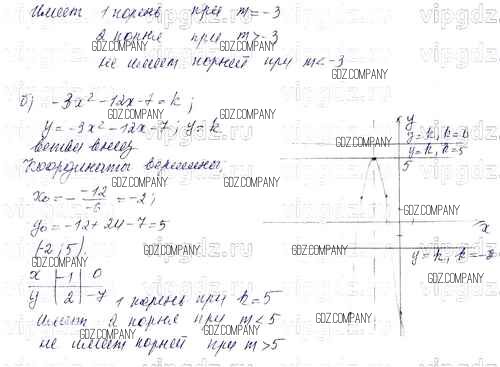 Имеет 1 корень при m = -3
2 корня при m > -3
не имеет корней при m < -3
б) -3x² - 12x - 7 = k;
y = -3x² - 12x - 7; y = k
ветви вниз
Координаты вершины,
x₀ = - -12/-6 = -2;
y₀ = -12 + 24 - 7 = 5
(-2; 5).
x | -1 | 0
y | 2 | -7
1 корень при k = 5
Имеет 2 корня при m < 5
не имеет корней при m > 5
y
y = k, k = 6
y = k, k = 5
5
x
y = k, k =
GDZ.COMPANY
vipgdz